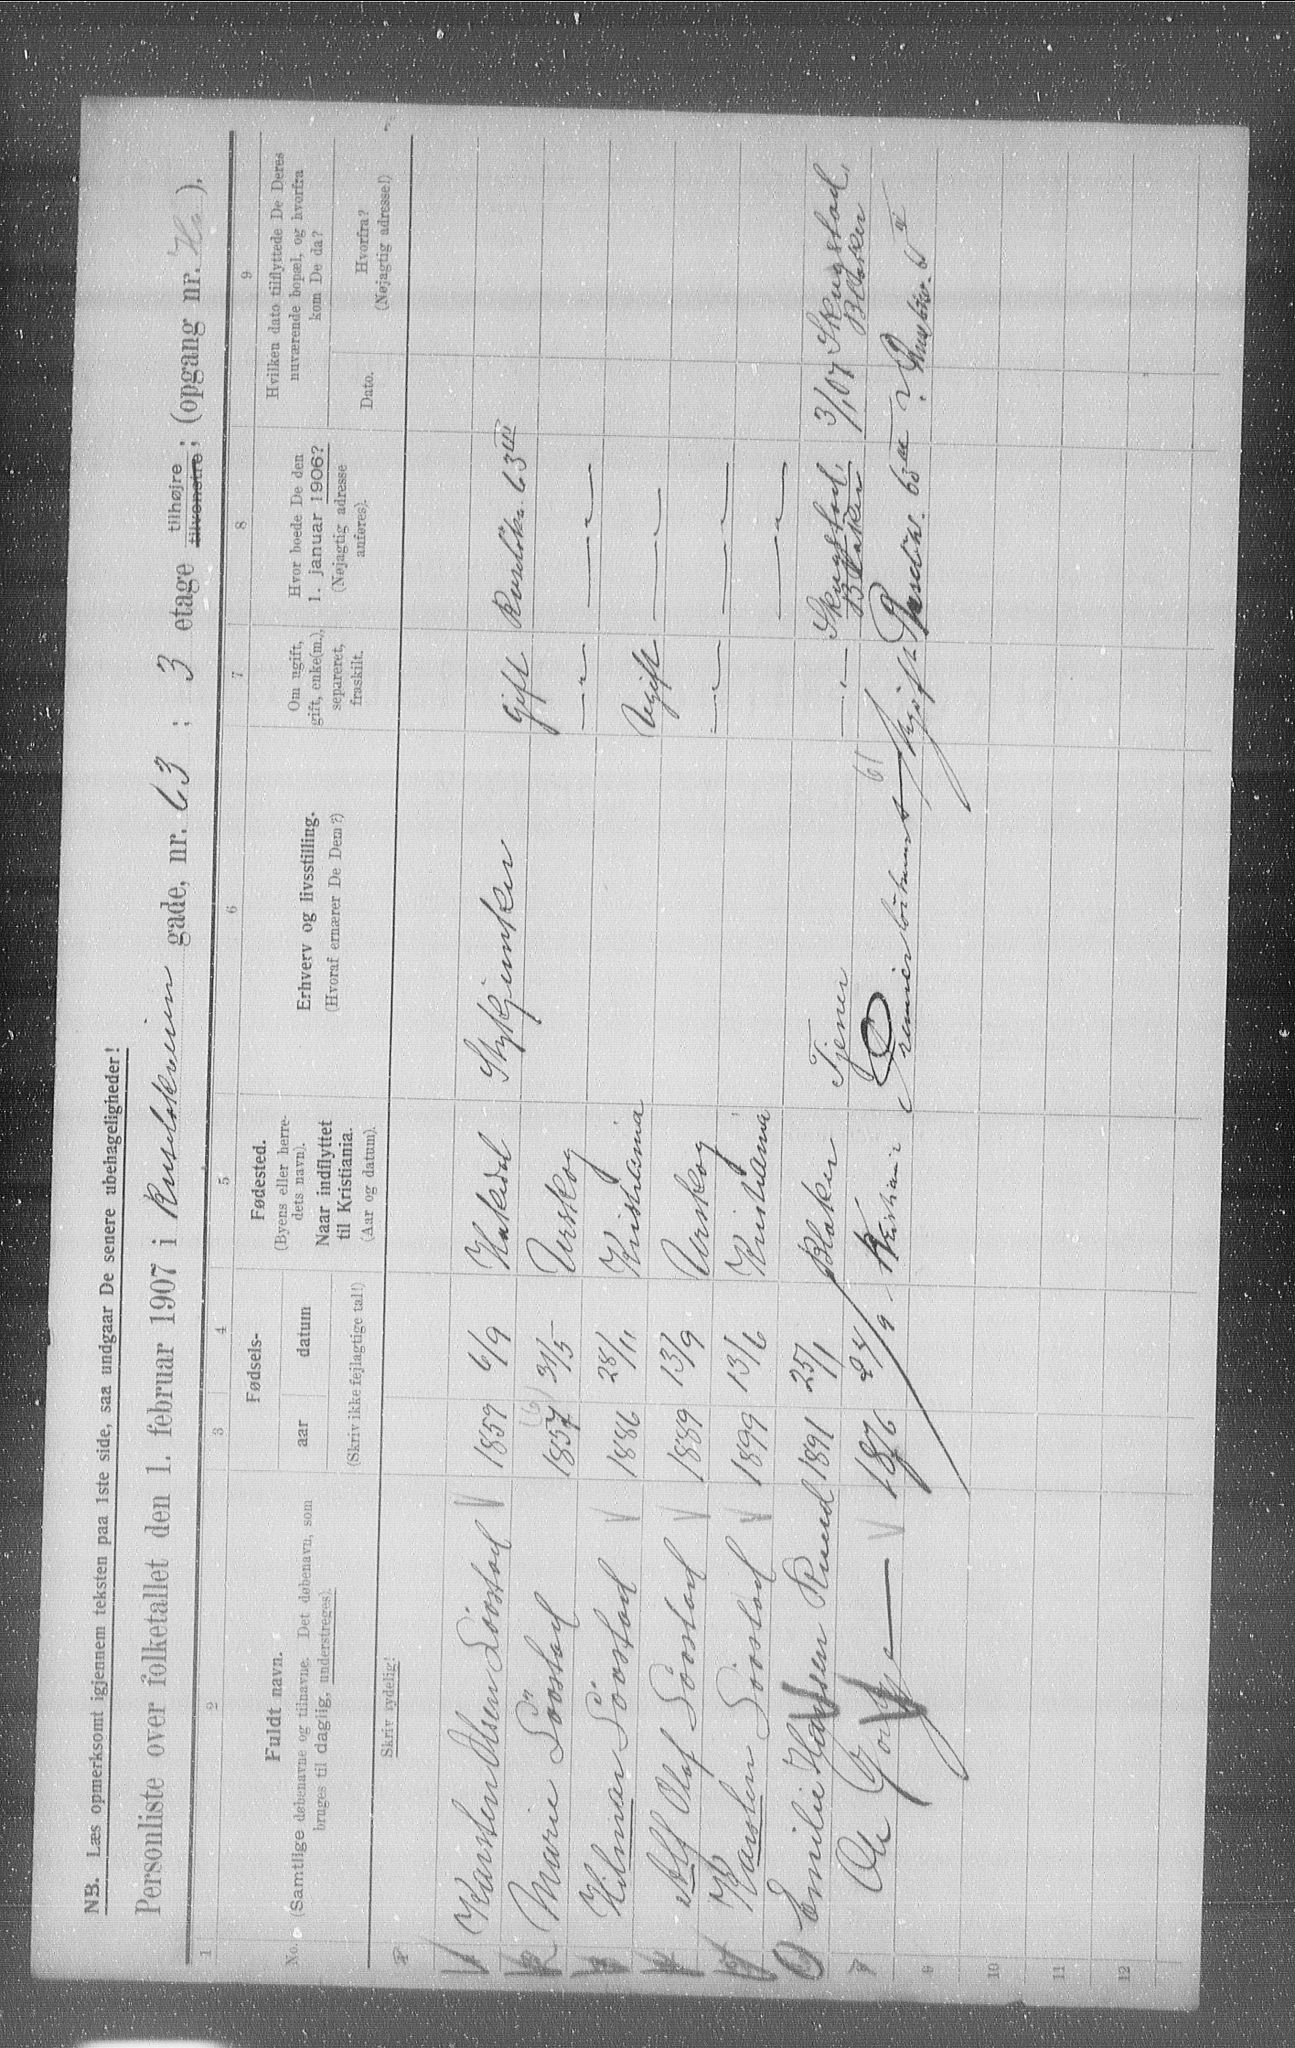 NB. Læs opmerksomt igjennem teksten paa 1ste side, saa undgaar De senere ubehageligheder!
Personliste over folketallet den 1. februar 1907 i Ruseløkveien gade, nr. 63 ; 3 etage tilhøjre tilvenstre; (opgang nr. ).
1 2 3 4 5 6 7 8 9
No. Fuldt navn.
(Samtlige døbenavne og tilnavne. Det døbenavn, som
bruges til daglig, understreges).
Skriv tydelig!
Fødsels-
aar datum
(Skriv ikke fejlagtige tal!)
Fødested.
(Byens eller herre-
dets navn).
Naar indflyttet
til Kristiania.
(Aar og datum).
Erhverv og livsstilling.
(Hvoraf ernærer De Dem?)
Om ugift,
gift, enke(m.),
separeret,
fraskilt.
Hvor boede De den
1. januar 1906?
(Nøjagtig adresse
anføres).
Hvilken dato tilflyttede De Deres
nuværende bopæl, og hvorfra
kom De da?
Dato.
Hvorfra?
(Nøjagtig adresse!)
Karsten Olsen Sööstad 1859 6/9 Hakedal gift Ruseløkv. 63 III
Marie Sööstad 1857 31/5 Urskog — " —
Hilmar Sööstad 1886 28/11 Kristiania Ugift — " —
Alf Olaf Sööstad 1889 13/9 Urskog — " — — " —
Karsten Sööstad 1899 13/6 Kristiania — " —
Emilie Hansen Ruud 1891 25/1 Blaker Tjener — " — Skugstad, Blaker 3/1 07 Skugstad, Blaker
1876 24/9 Kristiania 61
9
10
11
12